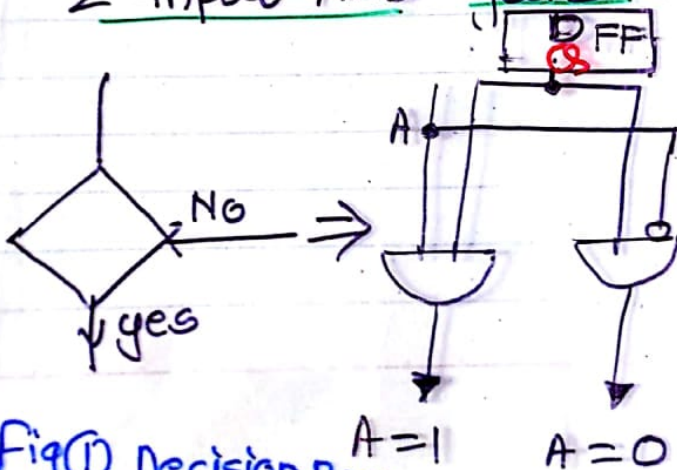 2 input
D FF
A
No
yes
A=1 A=0
Fig(1) Decision